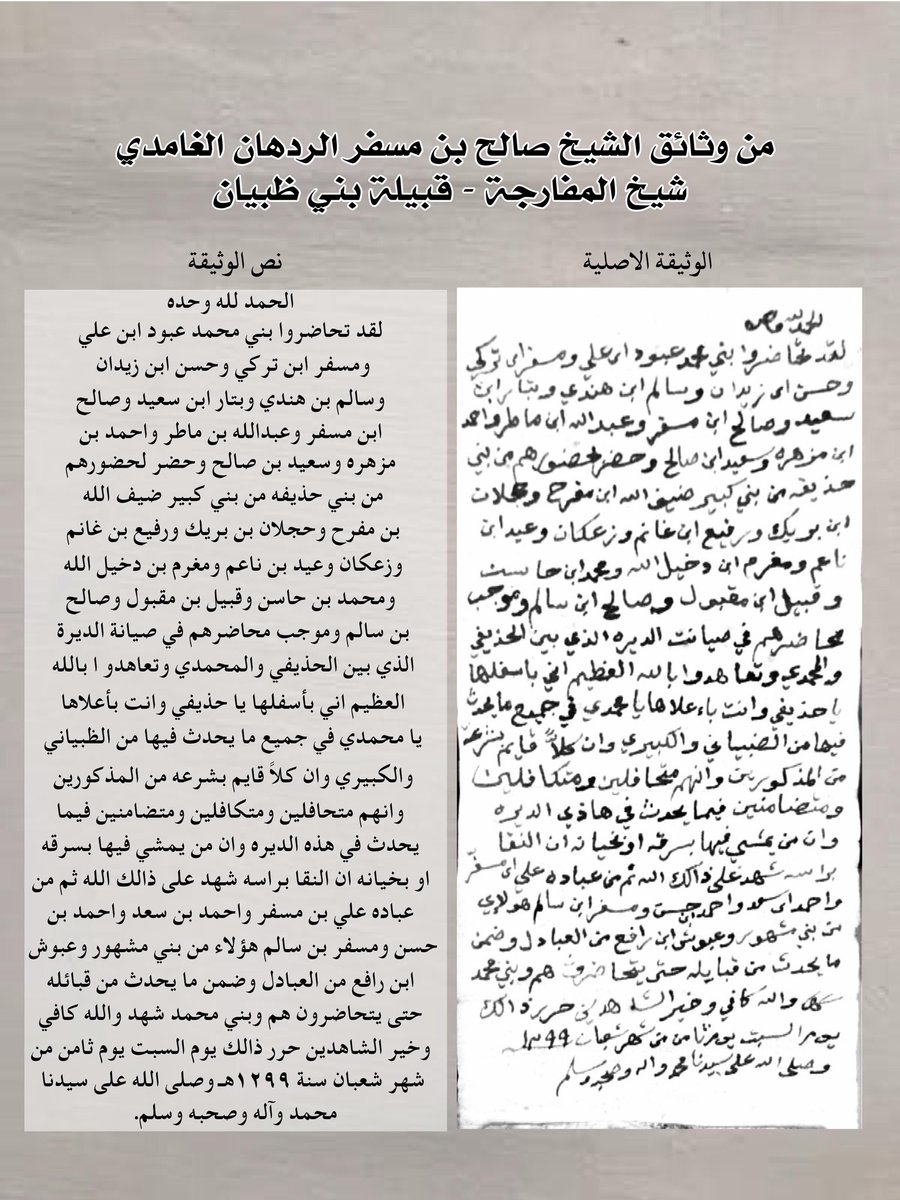 من وثائق الشيخ صالح بن مسفر الردهان الغامدي
شيخ المفارجة - قبيلة بني ظبيان
الوثيقة الاصلية
لقد تحاضروا بني محمد عبود ابن علي ومسفر ابن تركي
وحسن ابن زيدان وسالم ابن هندي وبتار ابن
سعيد وصالح ابن مسفر وعبدالله ابن ماطر واحمد
ابن مزهره وسعيد ابن صالح وحضر لحضورهم من بني
حذيفه من بني كبير ضيف الله ابن مفرح وحجلان
ابن بريك ورفيع ابن غانم وزعكان وعيد ابن
ناعم ومغرم ابن دخيل الله ومحمد ابن حاسن
وقبيل ابن مقبول وصالح ابن سالم وموجب
محاضرهم في صيانت الديره الذي بين الحذيفي
والمحمدي وتعاهدوا بالله العظيم اني باسفلها
يا حذيفي وانت باعلاها يا محمدي في جميع ما يحدث
فيها من الضبياني والكبيري وان كلاً قايم بشرعه
من المذكورين وانهم متحافلين ومتكافلين
ومتضامنين فيما يحدث في هاذي الديره
وان من يمشي فيها بسرقه او بخيانه ان النقا
براسه شهد على ذالك الله ثم من عباده علي ابن مسفر
واحمد ابن سعد واحمد ابن حسن ومسفر ابن سالم هولاي
من بني مشهور وعبوش ابن رافع من العبادل وضمن
ما يحدث من قبايله حتى يتحاضرون هم وبني محمد
شهد والله كافي وخير الشاهدين حرر ذالك
يوم السبت يوم ثامن من شهر شعبان سنة ١٢٩٩
وصلى الله على سيدنا محمد واله وصحبه وسلم
نص الوثيقة
الحمد لله وحده
لقد تحاضروا بني محمد عبود ابن علي
ومسفر ابن تركي وحسن ابن زيدان
وسالم بن هندي وبتار ابن سعيد وصالح
ابن مسفر وعبدالله بن ماطر واحمد بن
مزهره وسعيد بن صالح وحضر لحضورهم
من بني حذيفه من بني كبير ضيف الله
بن مفرح وحجلان بن بريك ورفيع بن غانم
وزعكان وعيد بن ناعم ومغرم بن دخيل الله
ومحمد بن حاسن وقبيل بن مقبول وصالح
بن سالم وموجب محاضرهم في صيانة الديرة
الذي بين الحذيفي والمحمدي وتعاهدو ا بالله
العظيم اني بأسفلها يا حذيفي وانت بأعلاها
يا محمدي في جميع ما يحدث فيها من الظبياني
والكبيري وان كلاً قايم بشرعه من المذكورين
وانهم متحافلين ومتكافلين ومتضامنين فيما
يحدث في هذه الديره وان من يمشي فيها بسرقه
او بخيانه ان النقا براسه شهد على ذالك الله ثم من
عباده علي بن مسفر واحمد بن سعد واحمد بن
حسن ومسفر بن سالم هؤلاء من بني مشهور وعبوش
ابن رافع من العبادل وضمن ما يحدث من قبائله
حتى يتحاضرون هم وبني محمد شهد والله كافي
وخير الشاهدين حرر ذالك يوم السبت يوم ثامن من
شهر شعبان سنة ١٢٩٩هـ وصلى الله على سيدنا
محمد وآله وصحبه وسلم.